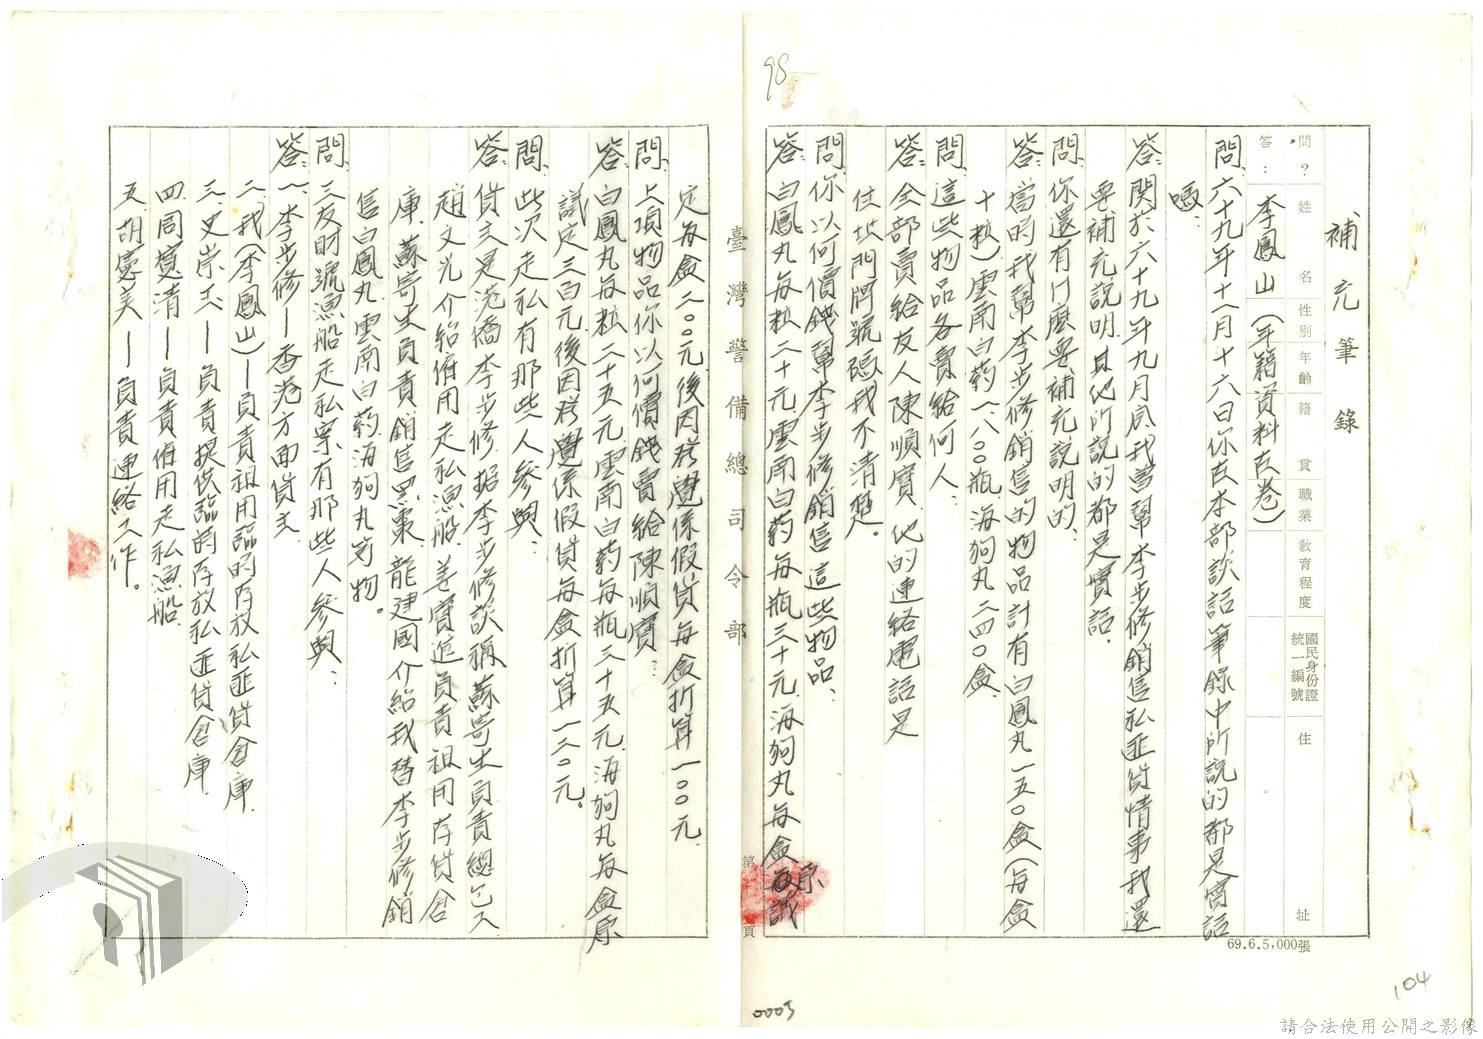 98
補充筆錄
問？ 姓名 性別 年齡 籍貫 職業 教育程度 國民身份證統一編號 住址
答： 李鳳山（年籍資料在卷）
問：六十九年十一月十六日你在本部談話筆錄中所說的都是實話
嗎：
答：關於六十九年九月底我曾幫李步修銷售私匪貨情事我還
要補充說明，其他所說的都是實話．
問：你還有什麼要補充說明的：
答：當時我幫李步修銷售的物品計有白鳳丸一五０盒（每盒
十粒）雲南白药一八０瓶，海狗丸二四０盒．
問：這些物品各賣給何人：
答：全部賣給友人陳順寶，他的連絡電話是
住址門牌號碼我不清楚。
問：你以何價錢幫李步修銷售這些物品：
答：白鳳丸每粒二十元，雲南白药每瓶三十元，海狗丸每盒原議
臺灣警備總司令部
第 頁
定每盒二００元，後因發覺係假貨每盒折算一００元．
問：上項物品你以何價錢賣給陳順寶：
答：白鳳丸每粒二十五元，雲南白药每瓶三十五元，海狗丸每盒原
議定三百元，後因發覺係假貨每盒折算一二０元。
問：些次走私有那些人參與：
答：貨主是港僑李步修，据李步修談稱，蘇寄生負責總包，
趙文光介紹僱用走私漁船，姜寶追負責租用存貨倉
庫，蘇寄生負責銷售黑棗，龍建國介紹我替李步修銷
售白鳳丸，雲南白药，海狗丸等物。
問：三友財號漁船走私案有那些人參與：
答：一、李步修—香港方面貨主．
二、我（李鳳山）—負責租用臨時存放私匪貨倉庫．
三、史崇六—負責提供臨時存放私匪貨倉庫．
四、同寬清—負責僱用走私漁船．
五、胡憲美—負責連絡工作。
69.6.5,000張
104
0005
請合法使用公開之影像